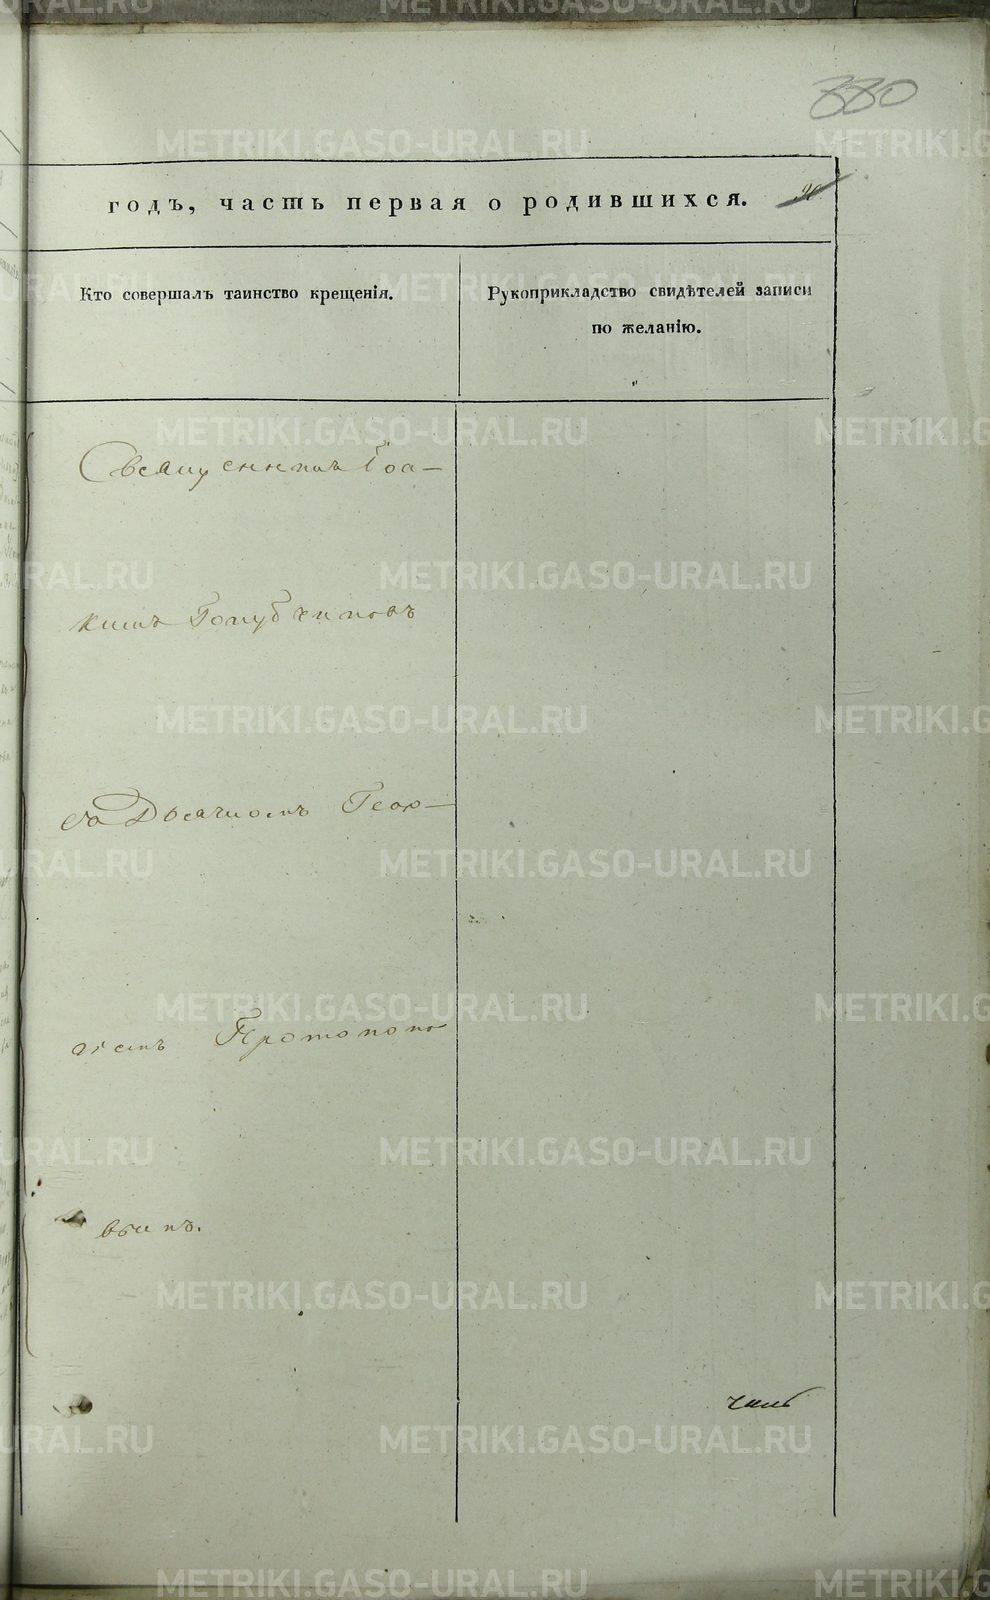 880
годъ, часть первая о родившихся.
Кто совершалъ таинство крещенія.
Рукоприкладство свидѣтелей записи
по желанію.
Священникъ Іоа-
кимъ Голубчиковъ
съ Діакономъ Геор-
гіемъ Протопопо-
вымъ.
METRIKI.GASO-URAL.RU